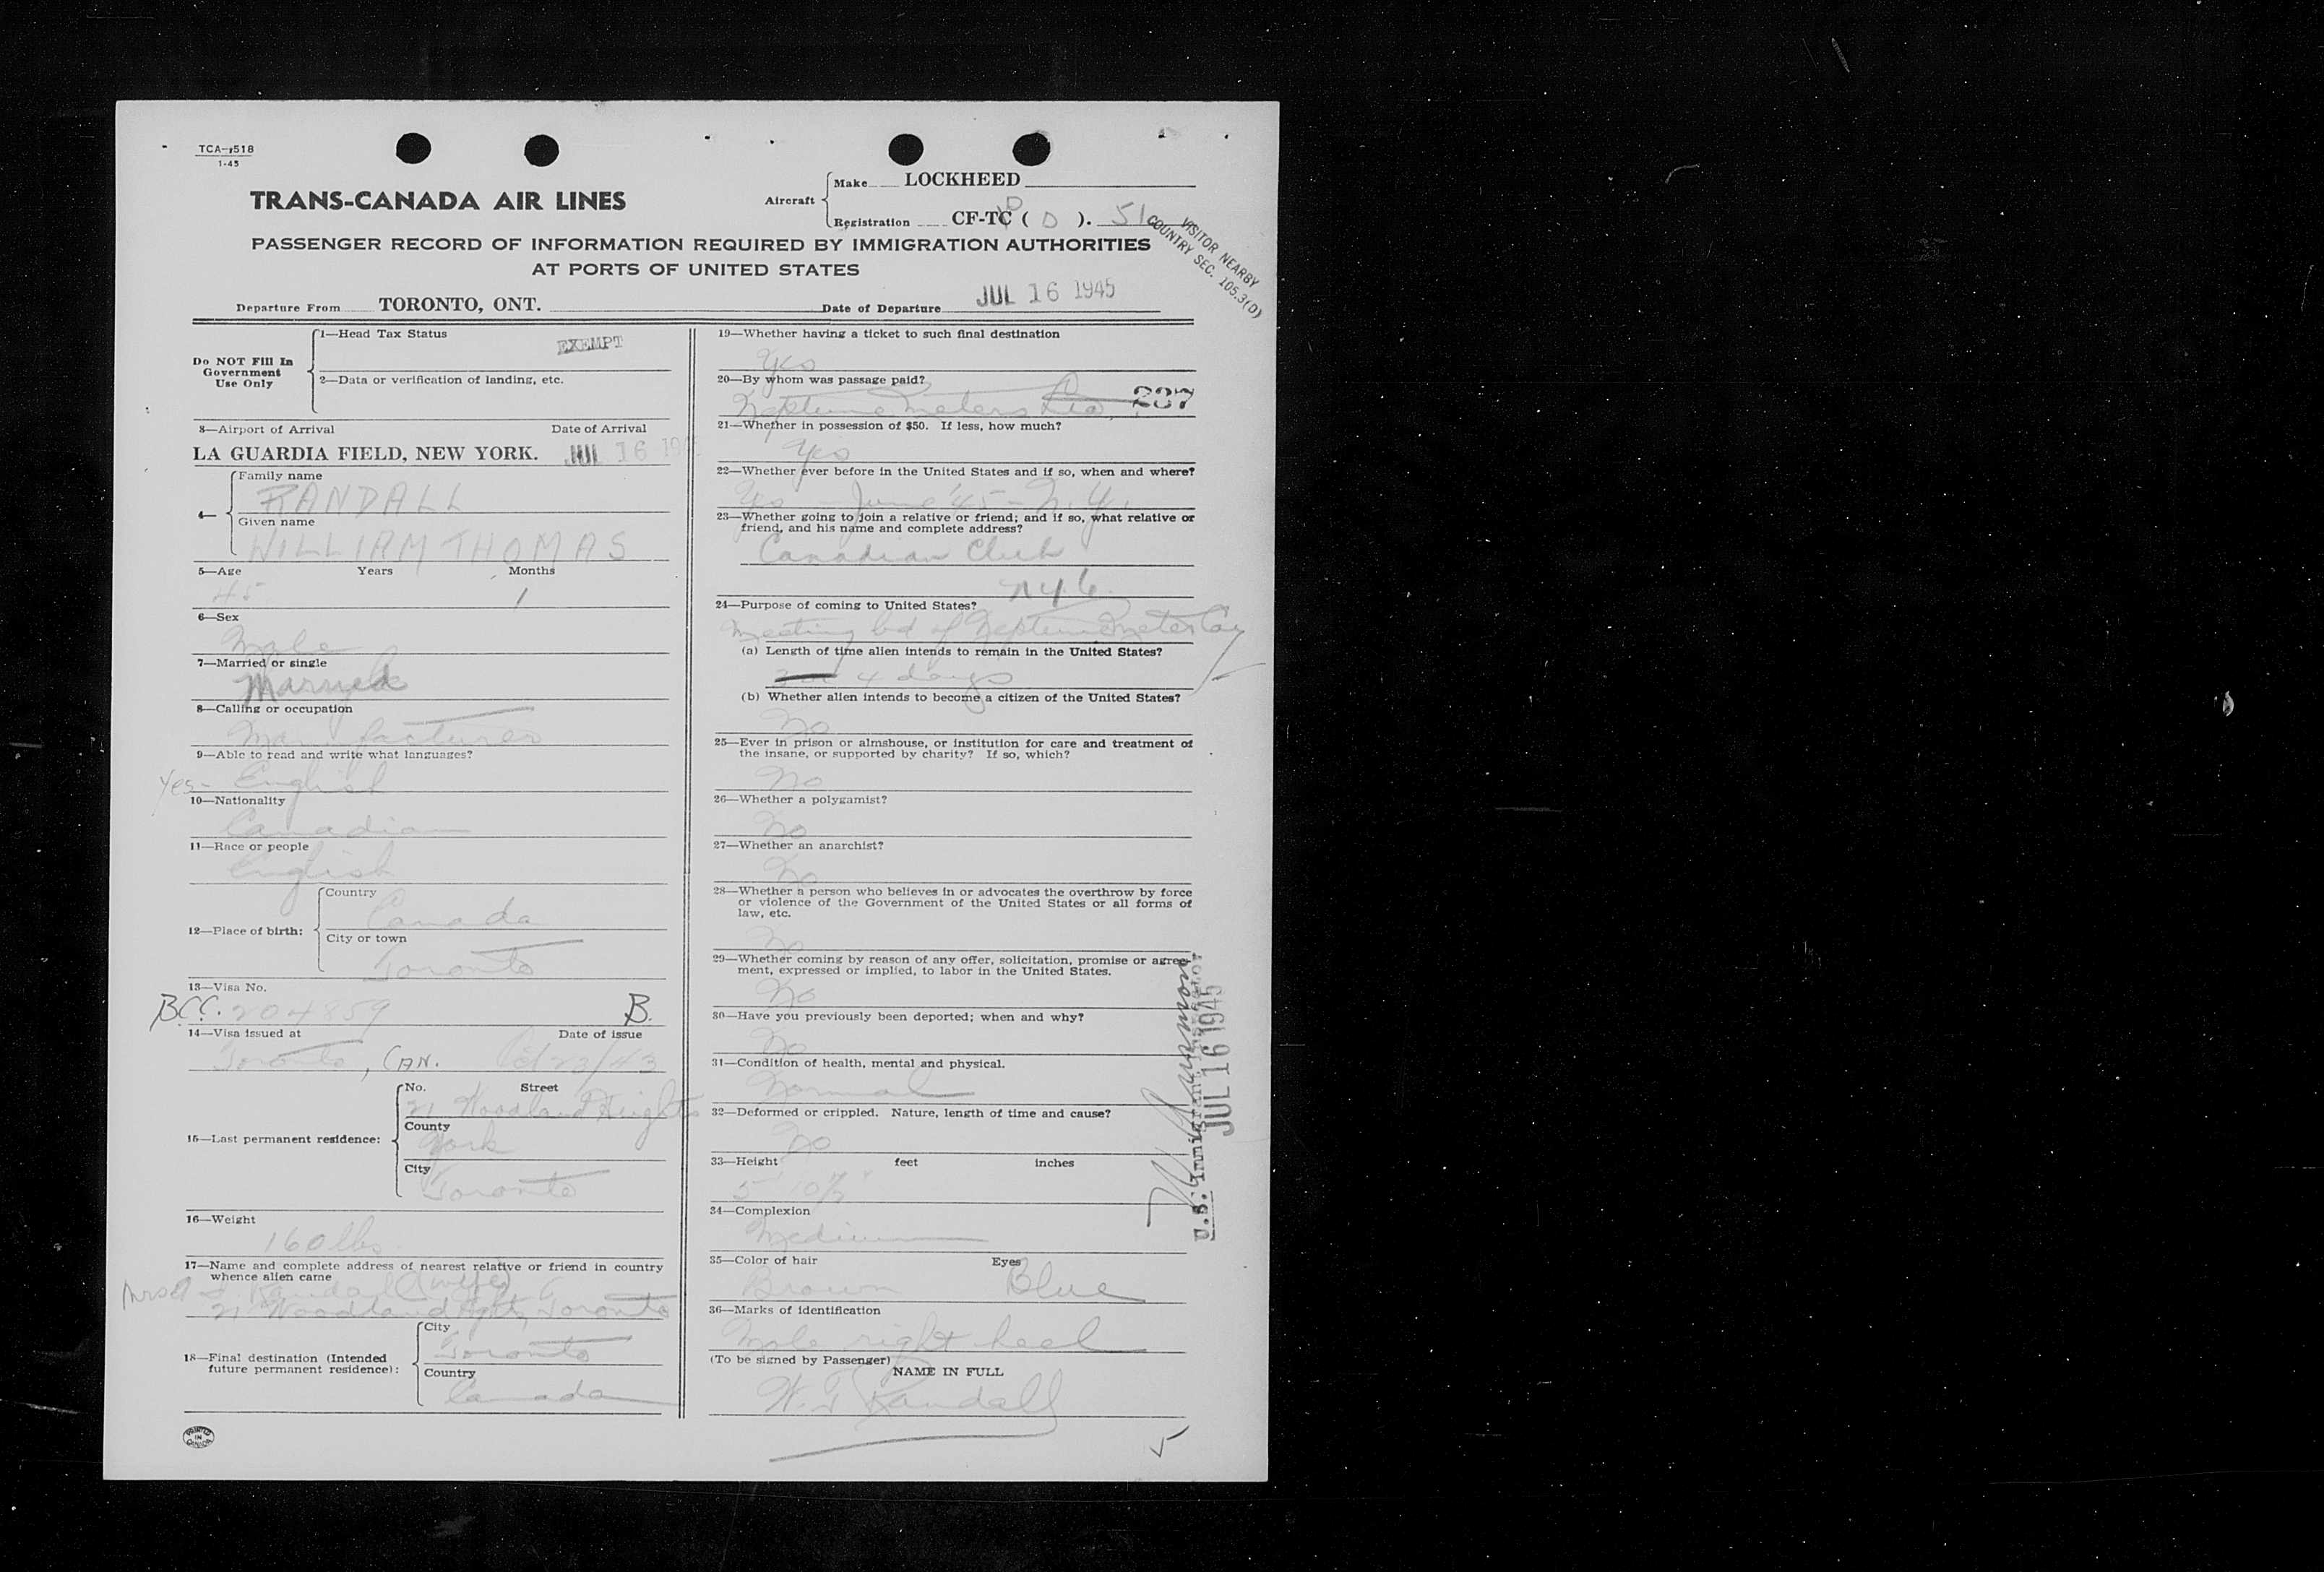 TCA-1518
1-45
TRANS-CANADA AIR LINES
Aircraft
Make LOCKHEED
Registration CF-TC ( D ). 51
VISITOR NEARBY
COUNTRY SEC. 105.3(D)
PASSENGER RECORD OF INFORMATION REQUIRED BY IMMIGRATION AUTHORITIES
AT PORTS OF UNITED STATES
Departure From TORONTO, ONT. Date of Departure JUL 16 1945
Do NOT Fill In
Government
Use Only
1—Head Tax Status
EXEMPT
2—Data or verification of landing, etc.
3—Airport of Arrival Date of Arrival
LA GUARDIA FIELD, NEW YORK. JUL 16 1945
4—
Family name
RANDALL
Given name
WILLIAM THOMAS
5—Age Years Months
45 1
6—Sex
Male
7—Married or single
Married
8—Calling or occupation
Manufacturer
9—Able to read and write what languages?
Yes - English
10—Nationality
Canadian
11—Race or people
English
12—Place of birth:
Country
Canada
City or town
Toronto
13—Visa No.
BCC. 204859 B.
14—Visa issued at Date of issue
Toronto, CAN. Oct 23/43
15—Last permanent residence:
No. Street
21 Woodland Heights
County
York
City
Toronto
16—Weight
160 lbs.
17—Name and complete address of nearest relative or friend in country
whence alien came
Mrs Randall (wife)
21 Woodland Hgts, Toronto
18—Final destination (Intended
future permanent residence):
City
Toronto
Country
Canada
PRINTED
IN
CANADA
19—Whether having a ticket to such final destination
Yes
20—By whom was passage paid?
Neptune Meters Ltd 237
21—Whether in possession of $50. If less, how much?
Yes
22—Whether ever before in the United States and if so, when and where?
Yes - June '45 - N.Y.
23—Whether going to join a relative or friend; and if so, what relative or
friend, and his name and complete address?
Canadian Club
NYC.
24—Purpose of coming to United States?
Meeting bd of Neptune Meter Coy
(a) Length of time alien intends to remain in the United States?
4 days
(b) Whether alien intends to become a citizen of the United States?
No
25—Ever in prison or almshouse, or institution for care and treatment of
the insane, or supported by charity? If so, which?
No
26—Whether a polygamist?
No
27—Whether an anarchist?
No
28—Whether a person who believes in or advocates the overthrow by force
or violence of the Government of the United States or all forms of
law, etc.
No
29—Whether coming by reason of any offer, solicitation, promise or agree-
ment, expressed or implied, to labor in the United States.
No
30—Have you previously been deported; when and why?
No
31—Condition of health, mental and physical.
Normal
32—Deformed or crippled. Nature, length of time and cause?
No
33—Height feet inches
5' 10½"
34—Complexion
Medium
35—Color of hair Eyes
Brown Blue
36—Marks of identification
Mole right heel
(To be signed by Passenger)
NAME IN FULL
W. T Randall
U.S. Immigrant Inspector
JUL 16 1945
5